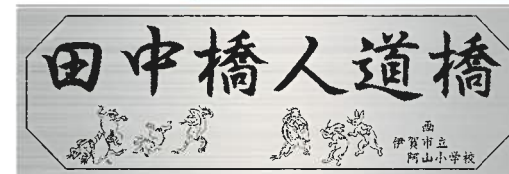 田中橋人道橋
画
伊賀市立
阿山小学校